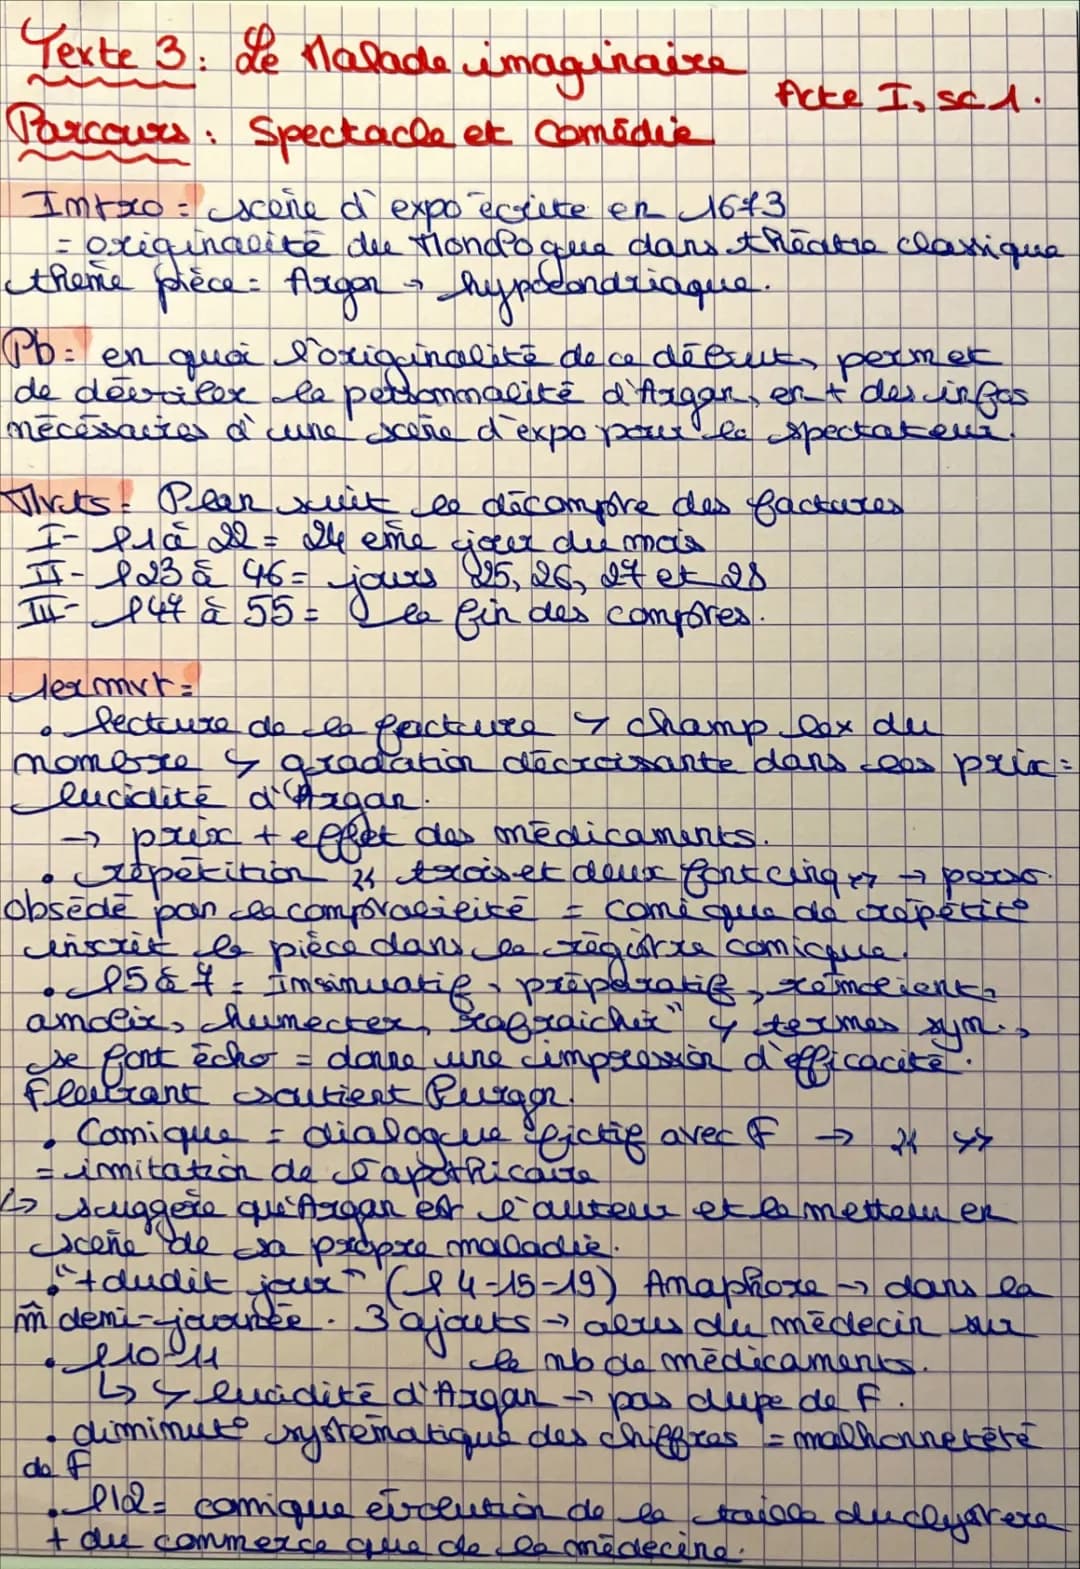 Texte 3 : Le Malade imaginaire
Acte I, sc 1.
Parcours : Spectacle et Comédie
Intro = scène d'expo écrite en 1673
= originalité du Monologue dans théâtre classique
thème pièce = Argan → hypocondriaque.
Pb = en quoi l'originalité de ce début, permet
de dévoiler la personnalité d'Argan, en + des infos
nécéssaires d'une scène d'expo pour le spectateur.
Mvts = Plan suit le décompte des factures
I- l1 à 22 = 24 ème jour du mois
II- l23 à 46 = jours 25, 26, 27 et 28
III- l47 à 55 = la fin des comptes.
1er mvt =
• lecture de la facture ↳ champ lex du
nombre ↳ gradation décroissante dans les prix =
lucidité d'Argan.
→ prix + effet des médicaments.
• répétition « trois et deux font cinq » → perso.
obsédé par la comptabilité = comique de répétit°
inscrit la pièce dans le registre comique.
• l5 à 7 = insinuatif, préparatif, rémolient,
amolir, humecter, rafraichir" ↳ termes sym.,
se font écho = donne une impression d'efficacité.
Fleurant soutient Purgon.
• Comique = dialogue fictif avec F → « »
= imitation de l'apothicaire
↳ suggère qu'Argan est l'auteur et le metteur en
scène de sa propre maladie.
• "+ dudit jour" (l 4-15-19) Anaphore → dans la
m̂ demi-journée. 3 ajouts → abus du médecin sur
le nb de médicaments.
• l10-11
↳ ↳ lucidité d'Argan → pas dupe de F.
• diminut° systématique des chiffres = malhonnêteté
de F
• l12 = comique évolution de la taille du clystère
+ du commerce que de la médecine.